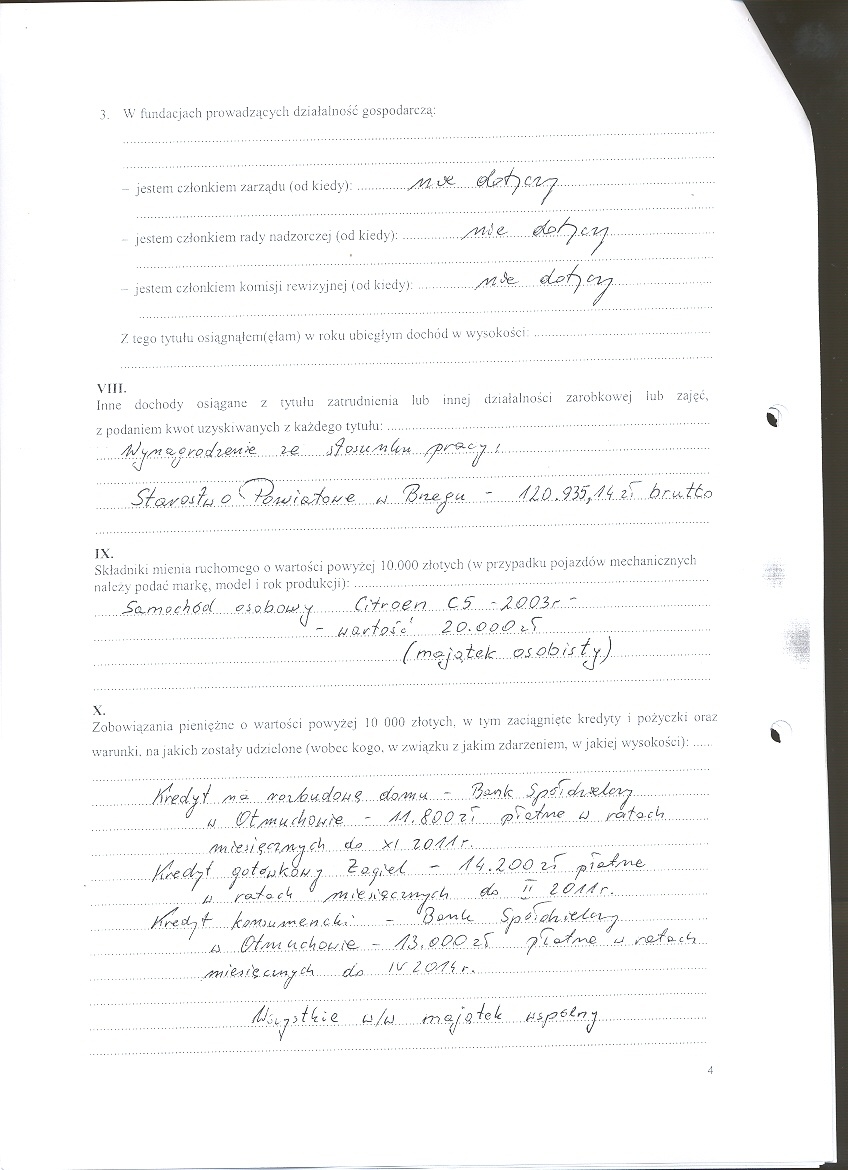 3. W fundacjach prowadzących działalność gospodarczą:
– jestem członkiem zarządu (od kiedy): nie dotyczy
– jestem członkiem rady nadzorczej (od kiedy): nie dotyczy
– jestem członkiem komisji rewizyjnej (od kiedy): nie dotyczy
Z tego tytułu osiągnąłem(ęłam) w roku ubiegłym dochód w wysokości:
VIII.
Inne dochody osiągane z tytułu zatrudnienia lub innej działalności zarobkowej lub zajęć,
z podaniem kwot uzyskiwanych z każdego tytułu:
Wynagrodzenie ze stosunku pracy:
Starostwo Powiatowe w Brzegu - 120.935,14 zł brutto
IX.
Składniki mienia ruchomego o wartości powyżej 10.000 złotych (w przypadku pojazdów mechanicznych
należy podać markę, model i rok produkcji):
Samochód osobowy Citroen C5 - 2003r -
- wartość 20.000 zł
(majątek osobisty)
X.
Zobowiązania pieniężne o wartości powyżej 10 000 złotych, w tym zaciągnięte kredyty i pożyczki oraz
warunki, na jakich zostały udzielone (wobec kogo, w związku z jakim zdarzeniem, w jakiej wysokości):
Kredyt na rozbudowę domu - Bank Spółdzielczy
w Otmuchowie - 11.800 zł płatne w ratach
miesięcznych do XI 2011 r.
Kredyt gotówkowy Żagiel - 14.200 zł płatne
w ratach miesięcznych do II 2011 r.
Kredyt konsumencki - Bank Spółdzielczy
w Otmuchowie - 13.000 zł płatne w ratach
miesięcznych do IV 2014 r.
Wszystkie w/w majątek wspólny
4